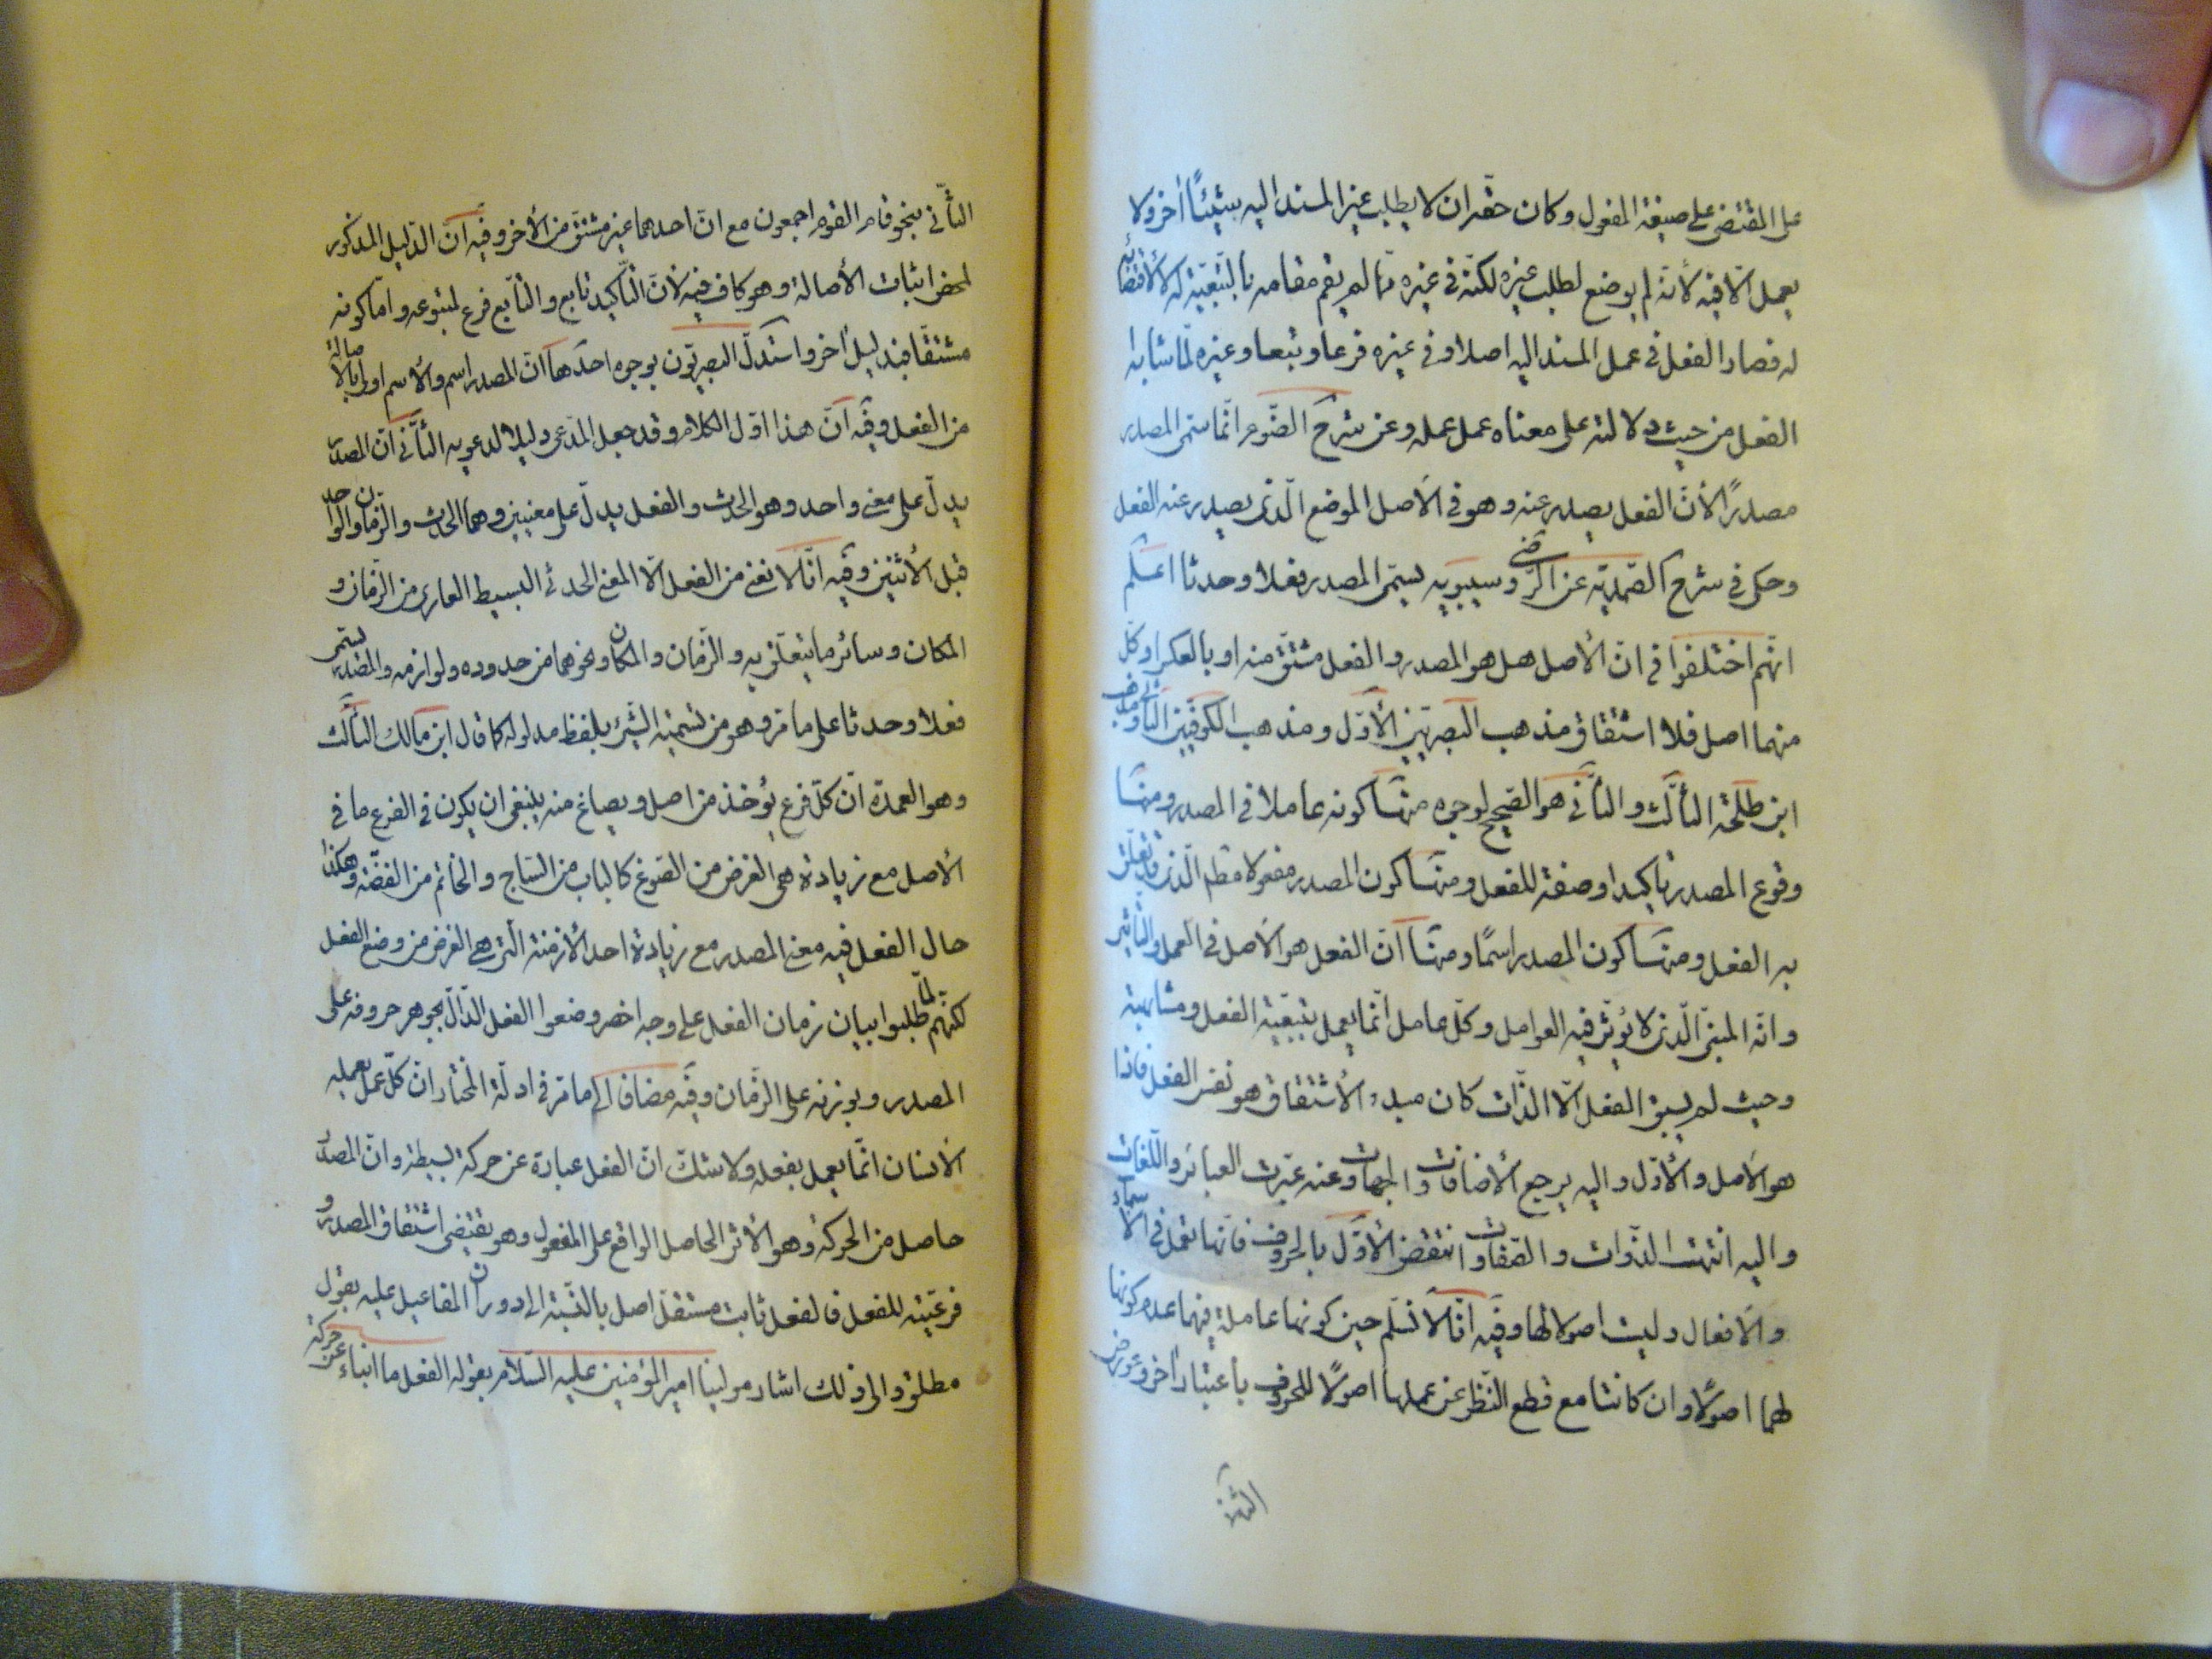 على المقتضى على صيغة المفعول وكان حقه ان لا يطلب غير المسند اليه شيئًا اخر ولا
يعمل الا فيه لأنه لم يوضع لطلب غيره لكنه في غيره مما لم يقم مقامه بالتبعية له لاقتضائه
له فصار الفعل في عمل المسند اليه اصلا وفي غيره فرعا وتبعا وغيره لما شابه
الفعل من حيث دلالته على معناه عمل عمله وعن شرح انما سمى المصدر
مصدرًا لأن الفعل يصدر عنه وهو في الأصل الموضع الذى يصدر عنه الفعل
وحكى في شرح الصمدية عن الرضى وسيبويه يسمى المصدر فعلا وحدثا اعلم
انهم اختلفوا في ان الأصل هل هو المصدر والفعل مشتق منه او بالعكس او كل
منهما اصل فلا اشتقاق مذهب البصريين الأول ومذهب الكوفيين الثانى ومذهب
ابن طلحة الثالث والثانى هو الصحيح لوجوه منها كونه عاملا في المصدر ومنها
وقوع المصدر تاكيدا وصفة للفعل ومنها كون المصدر مفعولا مطلقا الذى تعلق
به الفعل ومنها كون المصدر اسمًا ومنها ان الفعل هو الأصل في العمل والتأثير
وانه المبنى الذى لا يؤثر فيه العوامل وكل عامل انما يعمل بتبعية الفعل ومشابهته
وحيث لم يسبق الفعل الا الذات كان مبدء الأشتقاق هو نفس الفعل فاذا
هو الأصل والأول واليه يرجع الأضافات والجهات وعنه عبرت العبائر واللغات
واليه انتهت الذوات والصفات وانتقض الأول بالحروف فانها تعمل في الأسماء
والأفعال وليست اصولا لها وفيه انا لا نسلم حين كونها عاملة فيهما عدم كونها
لهما اصولًا وان كانتا مع قطع النظر عن عملها اصولًا للحروف باعتبار اخر وعورض
الثانى بنحو قام القوم اجمعون مع ان احدهما غير مشتق من الأخر وفيه ان الدليل المذكور
لمحض اثبات الأصالة وهو كاف فيه لأن التأكيد تابع والتابع فرع لمتبوعه واما كونه
مشتقا فبدليل اخر واستدل البصريون بوجوه احدها ان المصدر اسم والأسم اولى بالأصالة
من الفعل وفيه ان هذا اول الكلام وقد جعل المدعى دليلا لدعويه الثانى ان المصدر
يدل على معنى واحد وهو الحدث والفعل يدل على معنيين وهما الحدث والزمان والواحد
قبل الأثنين وفيه انا لا نعنى من الفعل الا المعنى الحدثى البسيط العارى من الزمان و
المكان وسائر ما يتعلق به والزمان والمكان ونحوهما من حدوده ولوازمه والمصدر يسمى
فعلا وحدثا على ما مر وهو من تسمية الشىء بلفظ مدلوله كما قال ابن مالك الثالث
وهو العمدة ان كل فرع يؤخذ من اصل ويصاغ منه ينبغى ان يكون في الفرع ما في
الأصل مع زيادة هى الغرض من الصوغ كالباب من الساج والخاتم من الفضة وهكذا
حال الفعل فيه معنى المصدر مع زيادة احد الأزمنة التى هى الغرض من وضع الفعل
لكنهم لما طلبوا بيان زمان الفعل على وجه اخصر وضعوا الفعل الدال بجوهر حروفه على
المصدر وبوزنه على الزمان وفيه مضافا الى ما مر في ادلة المختار ان كل عمل يعمله
الأنسان انما يعمل بفعله ولا شك ان الفعل عبارة عن حركة بسيطة وان المصدر
حاصل من الحركة وهو الأثر الحاصل الواقع على المفعول وهو يقتضى اشتقاق المصدر و
فرعيته للفعل فالفعل ثابت مستقل اصل بالنسبة الى دوران المفاعيل عليه بقول
مطلق والى ذلك اشار مولينا امير المؤمنين عليه السلام بقوله الفعل ما انباء عن حركة